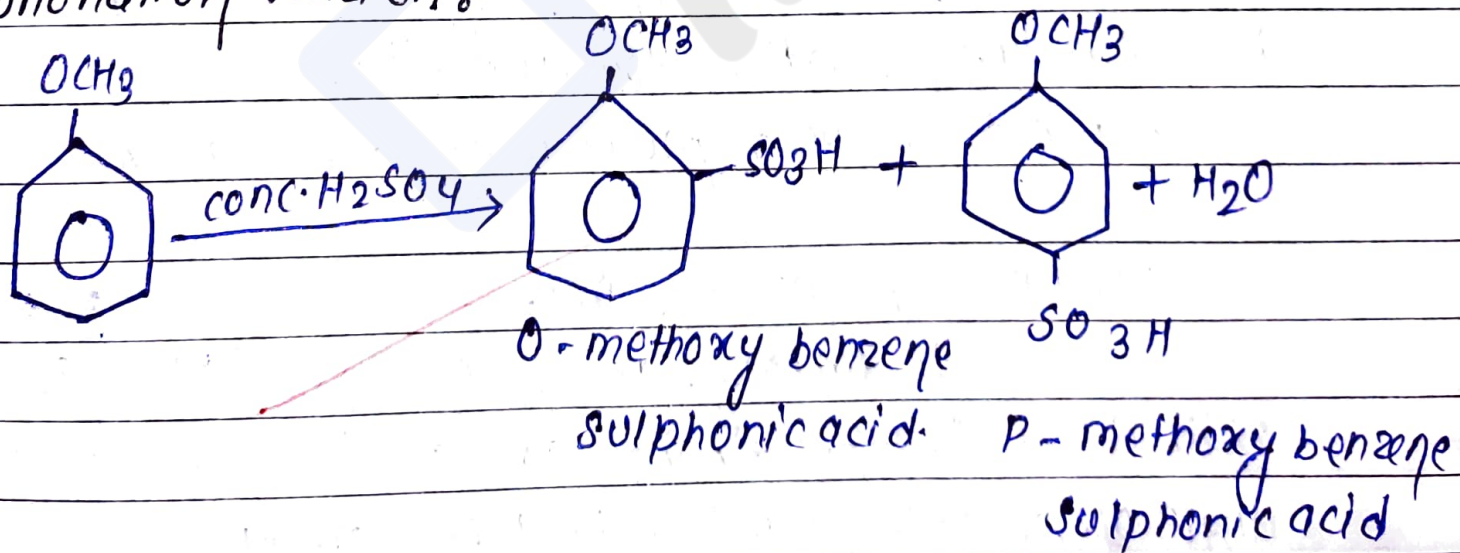 OCH3 OCH3 OCH3
conc. H2SO4 SO3H + + H2O
SO3H
O-methoxy benzene
sulphonic acid. P-methoxy benzene
sulphonic acid